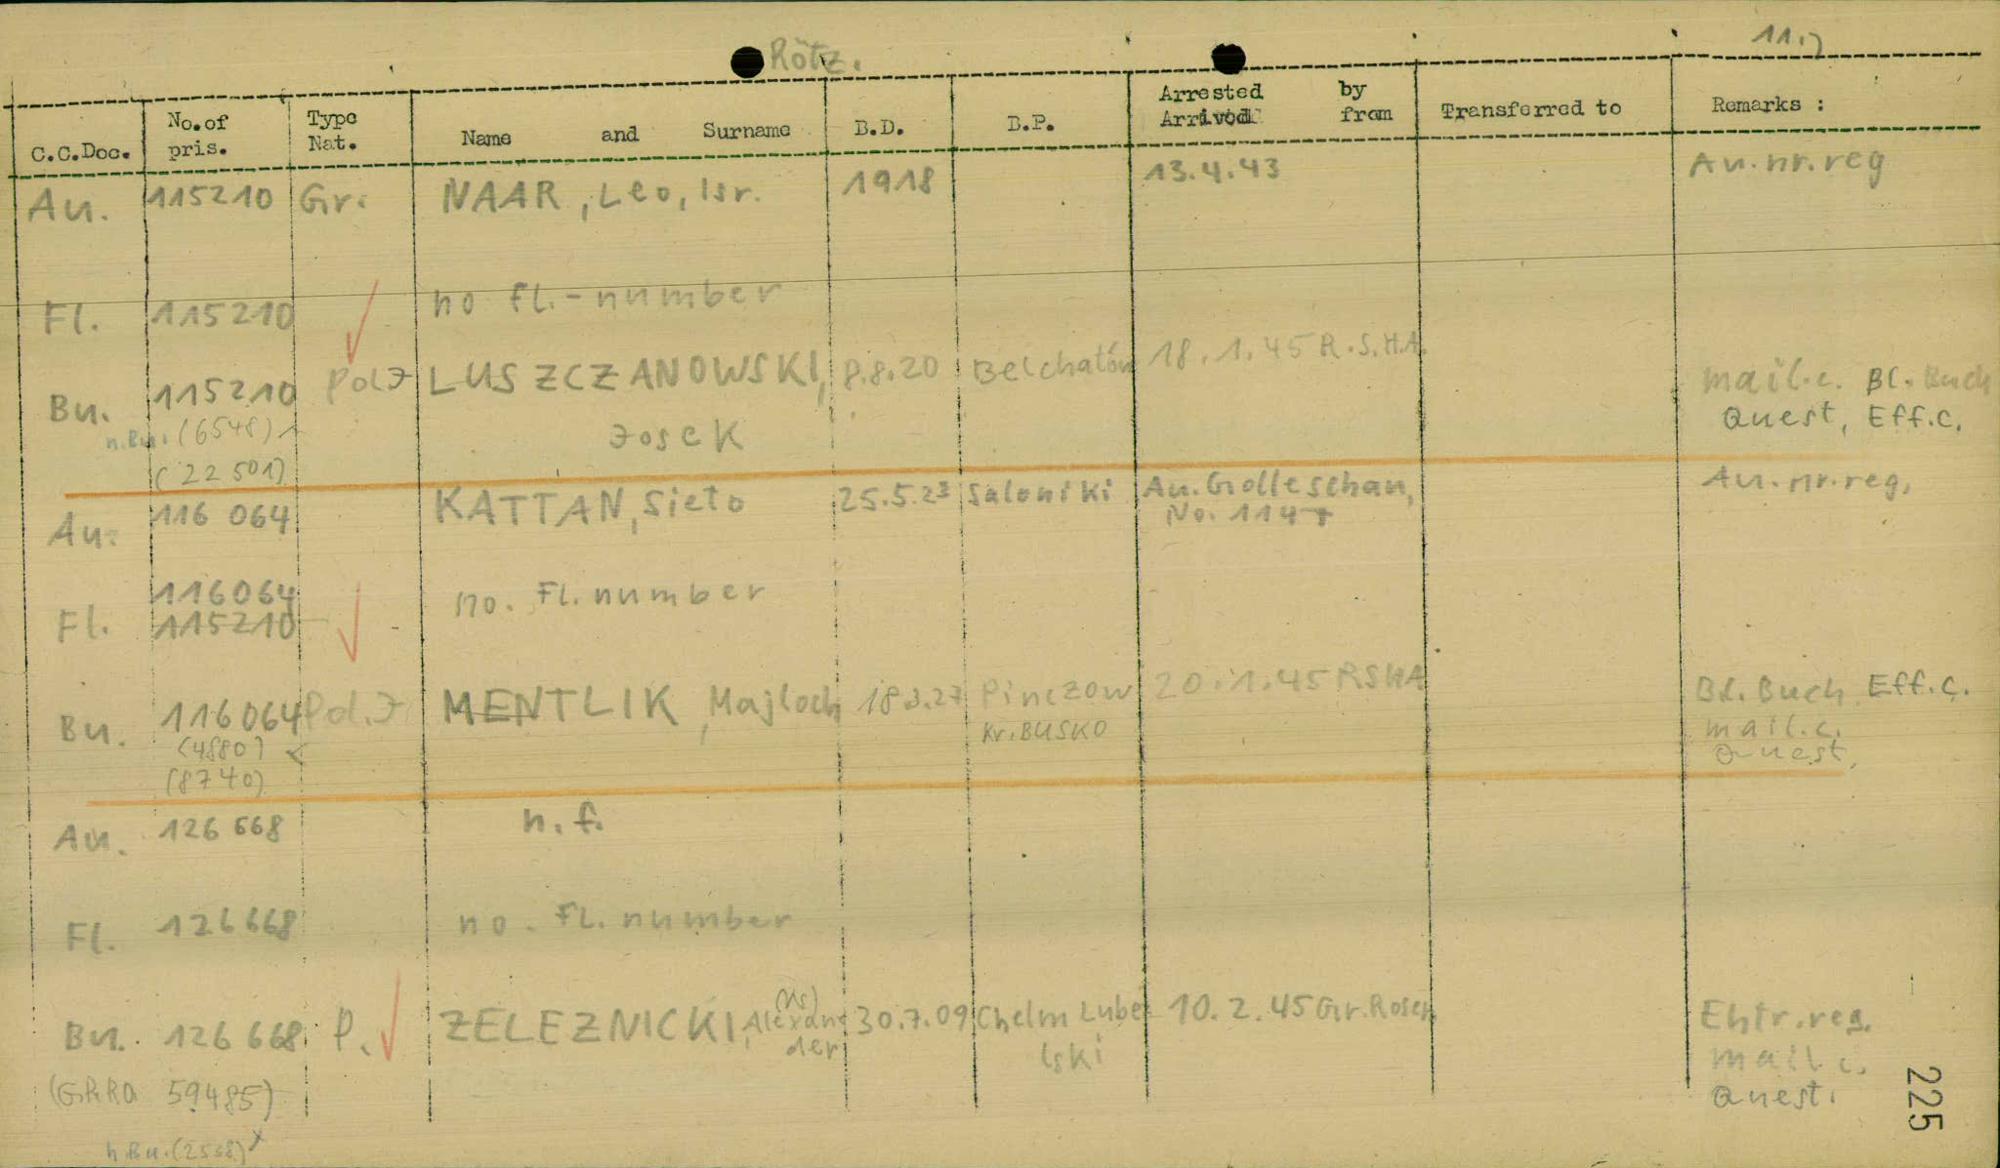 Rötz.
11.
C.C.Doc. No.of pris. Type Nat. Name and Surname B.D. B.P. Arrested by Arrived from Transferred to Remarks :
Au. 115210 Gr. NAAR, Leo, Isr. 1918 13.4.43 Au.nr.reg
Fl. 115210 no Fl.-number
Bu. 115210 Pol J LUSZCZANOWSKI, 8.8.20 Belchatów 18.1.45 R.S.H.A. mail.c. Bl. Buch
n.Bu. (6548) Josek Quest, Eff.c.
(22 501)
Au. 116 064 KATTAN, Sieto 25.5.23 Saloniki Au. Golleschau, Au.nr.reg.
No. 1147
Fl. 116064 no. Fl. number
115210
Bu. 116064 Pol.J MENTLIK, Majloch 18.3.27 Pinczow 20.1.45 RSHA Bl. Buch Eff.c.
(4880) Kr. BUSKO mail.c.
(8740) Quest.
Au. 126 668 n.f.
Fl. 126668 no. Fl. number
Bu. 126 668 P. ZELEZNICKI, Alexander 30.7.09 Chelm Lubelski 10.2.45 Gr.Rosen Entr.reg.
mail c.
(GRRO 59485) Quest.
n.Bu.
225